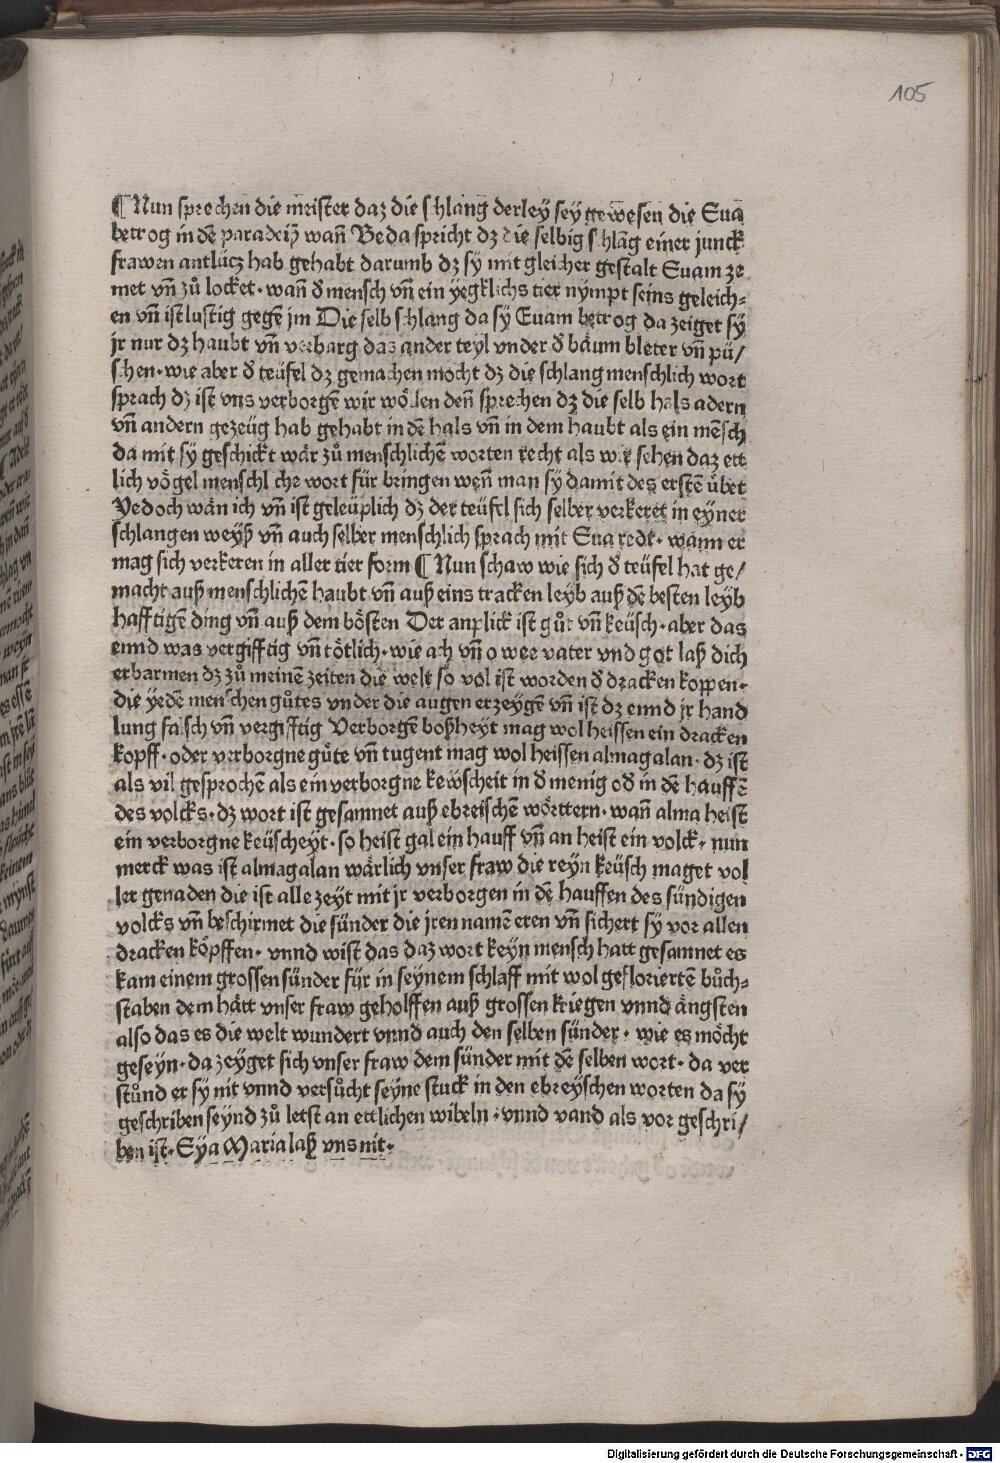 105
¶ Nun sprechen die meister daz die schlang derley sey gewesen die Eua
betrog in dē paradeiß wañ Beda spricht dz die selbig schlāg einer junck
frawen antlücz hab gehabt darumb dz sÿ mit gleicher gestalt Euam ze
met vñ zů locket · wañ đ mensch vñ ein yegklichs tier nympt seins geleich⸗
en vñ ist lustig gegē jm Die selb schlang da sÿ Euam betrog da zeiget sÿ
jr nur dz haubt vñ verbarg das ander teyl vnder đ bäum bleter vñ pü/
schen · wie aber đ teüfel dz gemachen mocht dz die schlang menschlich wort
sprach dz ist vns verborgē wir wöllen deñ sprechen dz die selb hals adern
vñ andern gezeüg hab gehabt in dē hals vñ in dem haubt als ein mēsch
da mit sÿ geschickt wär zů menschlichē worten recht als wir sehen daz ett
lich vögel menschlche wort für bringen weñ man sÿ damit des erstē übet
Yedoch wän ich vñ ist geleüplich dz der teüfel sich selber verkeret in eyner
schlangen weyß vñ auch selber menschlich sprach mit Eua redt · wann er
mag sich verkeren in aller tier form ¶ Nun schaw wie sich đ teüfel hat ge/
macht auß menschlichē haubt vñ auß eins tracken leyb auß dē besten leyb
hafftigē ding vñ auß dem bösten Der anplick ist gůt vñ keüsch · aber das
ennd was vergifftig vñ tötlich · wie ach vñ o wee vater vnd got laß dich
erbarmen dz zů meinē zeiten die welt so vol ist worden đ dracken koppen ·
die yedē menschen gůtes vnder die augen erzeygē vñ ist dz ennd jr hand
lung falsch vñ vergifftig Verborgē boßheyt mag wol heissen ein dracken
kopff · oder verborgne güte vñ tugent mag wol heissen almagalan · dz ist
als vil gesprochē als ein verborgne kewscheit in đ menig ođ in dē hauffē
des volcks · dz wort ist gesamnet auß ebreischē wörttern · wañ alma heist
ein verborgne keüscheyt · so heist gal ein hauff vñ an heist ein volck · nun
merck was ist almagalan wärlich vnser fraw die reyn keüsch maget vol
ler genaden die ist alle zeyt mit jr verborgen in dē hauffen des sündigen
volcks vñ beschirmet die sünder die jren namē eren vñ sichert sÿ vor allen
dracken köpffen · vnnd wist das daz wort keyn mensch hatt gesamnet es
kam einem grossen sünder für in seynem schlaff mit wol gefloriertē bůch⸗
staben dem hätt vnser fraw geholffen auß grossen kriegen vnnd ängsten
also das es die welt wundert vnnd auch den selben sünder · wie es möcht
geseyn · da zeyget sich vnser fraw dem sünder mit dē selben wort · da ver
stůnd er sÿ nit vnnd versůcht seyne stuck in den ebreyschen worten da sÿ
geschriben seynd zů letst an ettlichen wibeln · vnnd vand als vor geschri/
ben ist · Eya Maria laß vns nit ·
Digitalisierung gefördert durch die Deutsche Forschungsgemeinschaft - DFG